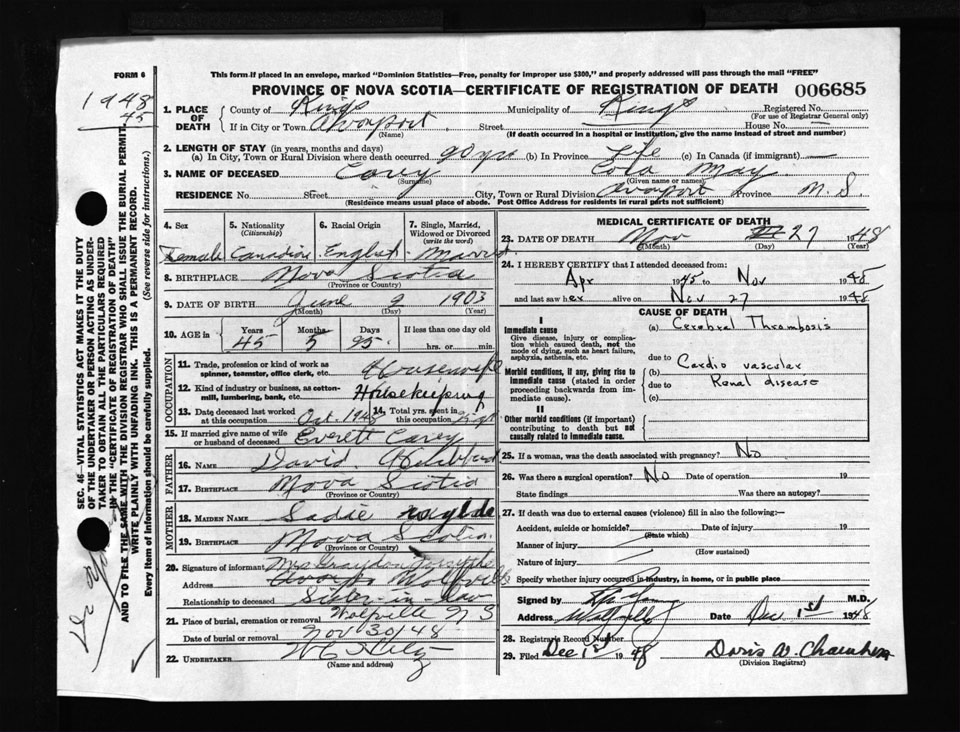 FORM 6
This form if placed in an envelope, marked "Dominion Statistics—Free, penalty for improper use $300," and properly addressed will pass through the mail "FREE"
1948
45
PROVINCE OF NOVA SCOTIA—CERTIFICATE OF REGISTRATION OF DEATH 006685
1. PLACE OF DEATH County of Kings Municipality of Kings Registered No.
(For use of Registrar General only)
If in City or Town Avonport Street House No.
(Name) (If death occurred in a hospital or institution, give the name instead of street and number)
2. LENGTH OF STAY (in years, months and days)
(a) In City, Town or Rural Division where death occurred yrs (b) In Province Life (c) In Canada (if immigrant) —
3. NAME OF DECEASED Corey Eola May
(Surname) (Given name or names)
RESIDENCE No. Street City, Town or Rural Division Avonport Province N. S.
(Residence means usual place of abode. Post Office Address for residents in rural parts not sufficient)
4. Sex 5. Nationality (Citizenship) 6. Racial Origin 7. Single, Married, Widowed or Divorced (write the word)
Female Canadian English Married
8. BIRTHPLACE Nova Scotia
(Province or Country)
9. DATE OF BIRTH June 2 1903
(Month) (Day) (Year)
10. AGE in Years Months Days If less than one day
45 5 25 hrs. or min.
OCCUPATION
11. Trade, profession or kind of work as spinner, teamster, office clerk, etc. Housewife
12. Kind of industry or business, as cotton-mill, lumbering, bank, etc. Housekeeping
13. Date deceased last worked at this occupation Oct. 1948 14. Total yrs. spent in this occupation
15. If married give name of wife or husband of deceased Everett Corey
FATHER
16. NAME David
17. BIRTHPLACE Nova Scotia
(Province or Country)
MOTHER
18. MAIDEN NAME Sadie
19. BIRTHPLACE Nova Scotia
(Province or Country)
20. Signature of informant Mrs Graydon Forsythe
Address Wolfville
Relationship to deceased Sister-in-law
21. Place of burial, cremation or removal Wolfville N S
Date of burial or removal Nov 30/48
22. UNDERTAKER
(Name and address)
MEDICAL CERTIFICATE OF DEATH
23. DATE OF DEATH Nov 27 1948
(Month) (Day) (Year)
24. I HEREBY CERTIFY that I attended deceased from:
Apr 1945 to Nov 1948
and last saw her alive on Nov 27 1948
CAUSE OF DEATH
I
Immediate cause (a) Cerebral Thrombosis
Give disease, injury or complication which caused death, not the mode of dying, such as heart failure, asphyxia, asthenia, etc.
due to Cardio vascular
Morbid conditions, if any, giving rise to immediate cause (stated in order proceeding backwards from immediate cause). (b) due to Renal disease
(c)
II
Other morbid conditions (if important) contributing to death but not causally related to immediate cause.
25. If a woman, was the death associated with pregnancy? No
26. Was there a surgical operation? No Date of operation 19
State findings Was there an autopsy?
27. If death was due to external causes (violence) fill in also the following:—
Accident, suicide or homicide? Date of injury 19
(State which)
Manner of injury
(How sustained)
Nature of injury
Specify whether injury occurred in industry, in home, or in public place
Signed by M.D.
Address Wolfville Date Dec 1st 1948
28. Registrar's Record Number
29. Filed Dec 1st 1948 Doris W. Chambers
(Division Registrar)
SEC. 46—VITAL STATISTICS ACT MAKES IT THE DUTY
OF THE UNDERTAKER OR PERSON ACTING AS UNDER-
TAKER TO OBTAIN ALL THE PARTICULARS REQUIRED
IN THE "CERTIFICATE OF REGISTRATION OF DEATH"
AND TO FILE THE SAME WITH THE DIVISION REGISTRAR WHO SHALL ISSUE THE BURIAL PERMIT.
WRITE PLAINLY WITH UNFADING INK. THIS IS A PERMANENT RECORD.
Every item of Information should be carefully supplied. (See reverse side for instructions.)